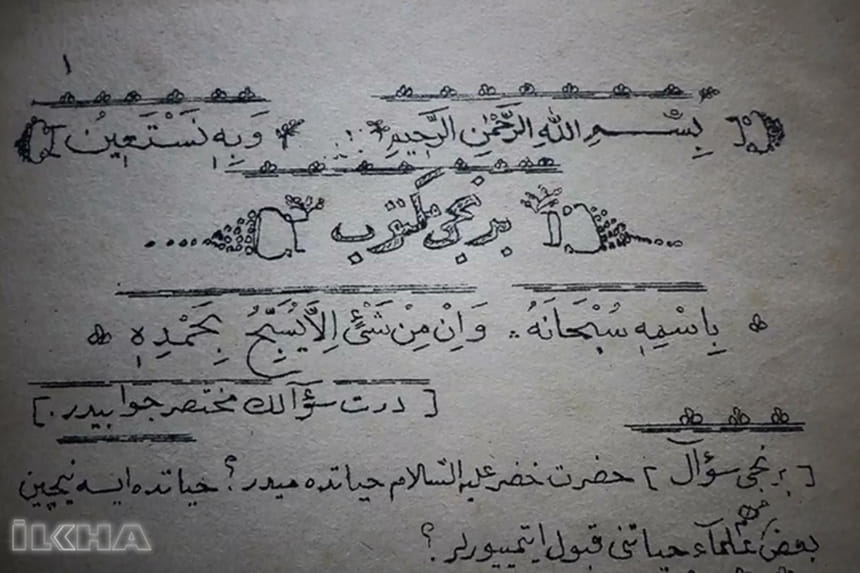 ١
بِسْمِ اللهِ الرَّحْمٰنِ الرَّحِيمِ وَبِهِ نَسْتَعِينُ
برنجى مكتوب
بِاسْمِهِ سُبْحَانَهُ وَاِنْ مِنْ شَىْءٍ اِلَّا يُسَبِّحُ بِحَمْدِهِ
[ درت سؤالك مختصر جوابيدر. ]
[ برنجى سؤال ] حضرت خضر عليه السلام حياتده ميدر؟ حياتده ايسه نيچين
بعض مهم علماء حياتنى قبول ايتمييورلر؟
İLKHA